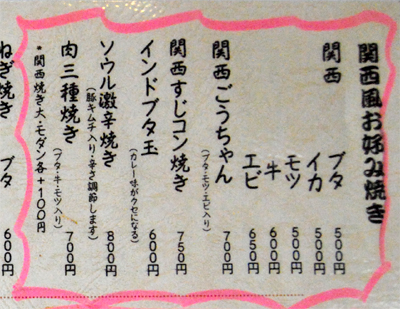 関西風お好み焼き
関西 ブタ 500円
イカ 500円
モツ 500円
牛 600円
エビ 650円
関西ごうちゃん 700円
(ブタ・モツ・エビ入り)
関西すじコン焼き 750円
インドブタ玉 600円
(カレー味がクセになる)
ソウル激辛焼き 800円
(豚キムチ入り・辛さ調節します)
肉三種焼き 700円
(ブタ・牛・モツ入り)
・関西焼き大・モダン各+100円
ねぎ焼き ブタ 600円